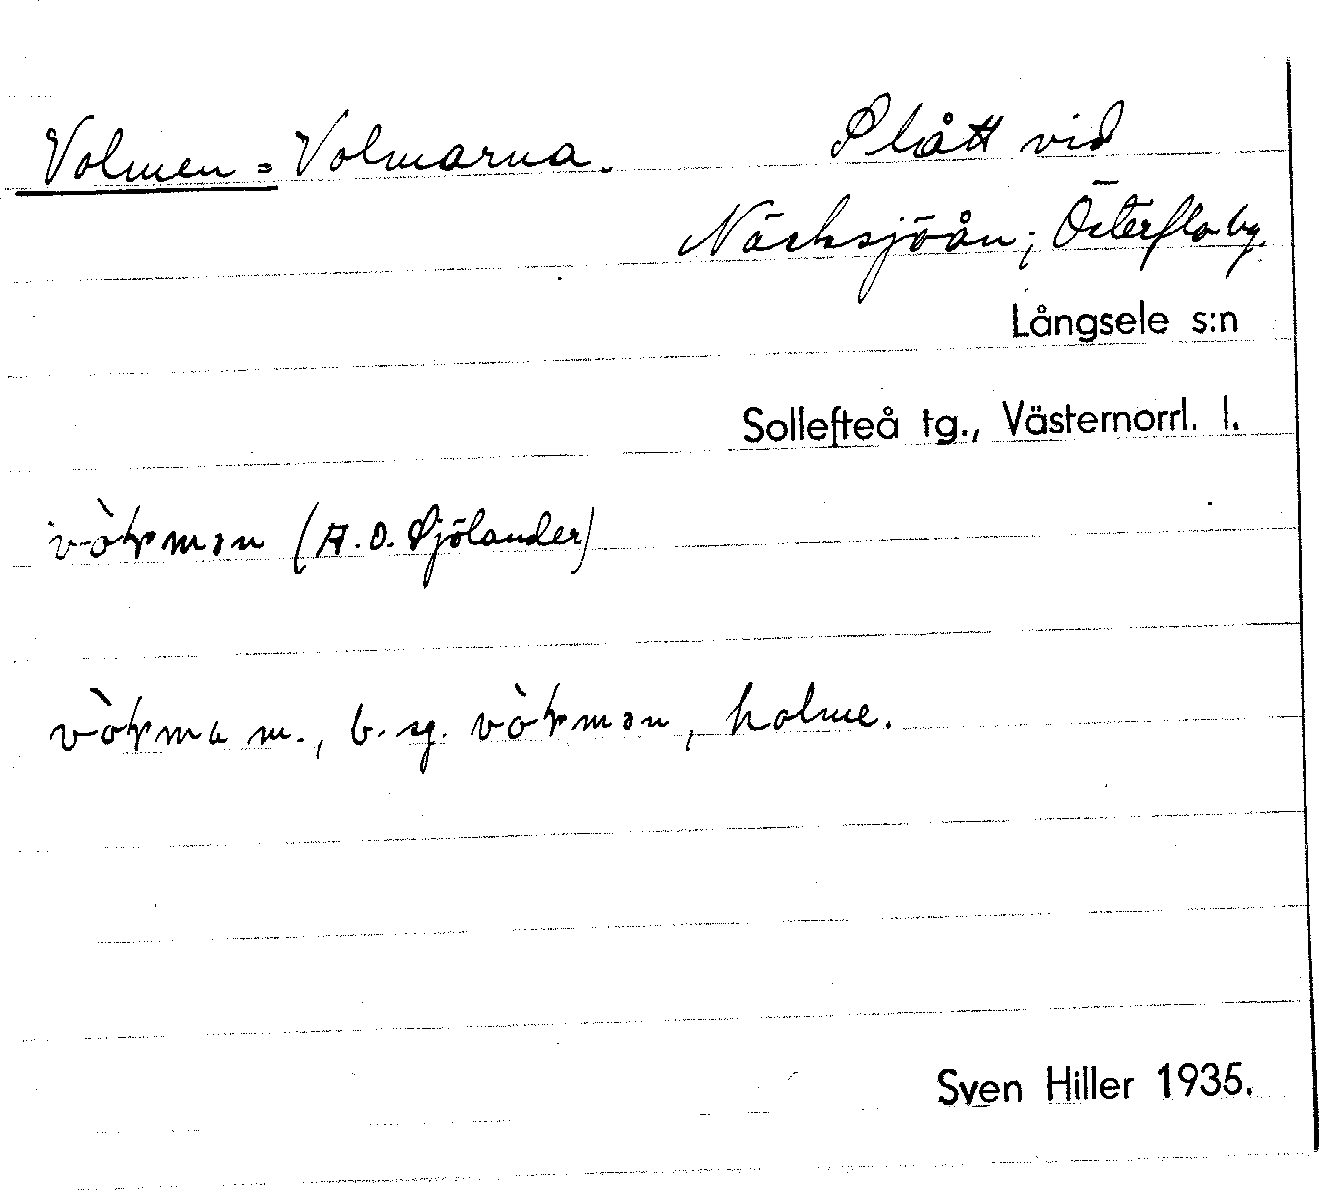 Volmen = Volmarna. Slått vid
Näcksjöån; Österflo by.
Långsele s:n
Sollefteå tg., Västernorrl. l.
(A. O. Sjölander)
m., b. sg. holme.
Sven Hiller 1935.